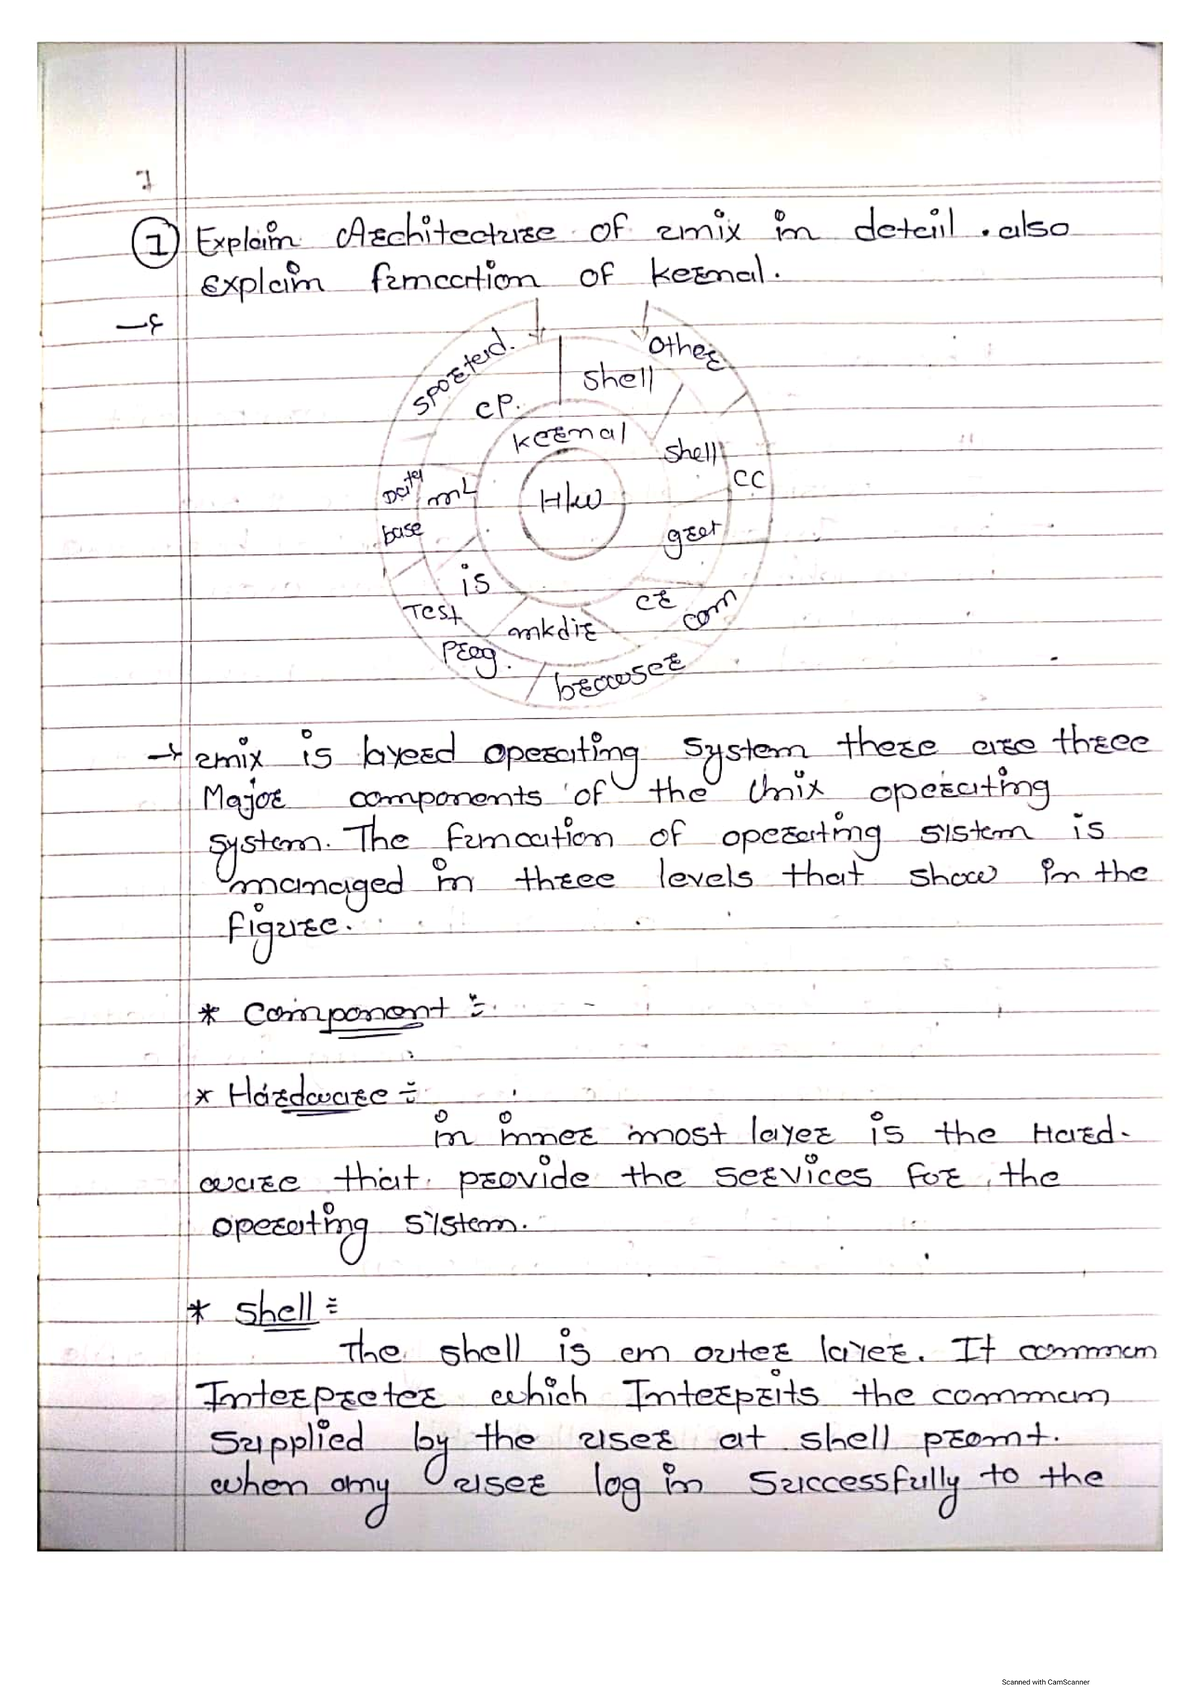 1
① Explain Architecture of unix in detail. also
explain function of kernal.
spreterd.
Other
shell
cp.
kernal
shell
CC
Data
base
mL
H/w
gret
is
Test
Prog.
mkdir
cr
com
browser
→ unix is layerd operating system there are three
Major components of the Unix operating
system. The function of operating sistem is
managed in three levels that show in the
figure.
* Component :-
* Hardware :-
in inner most layer is the Hard-
ware that provide the services for the
operating system.
* Shell :-
The shell is an outer layer. It comman
Interpreter which Interprits the comman
supplied by the user at shell promt.
when any user log in successfully to the
Scanned with CamScanner